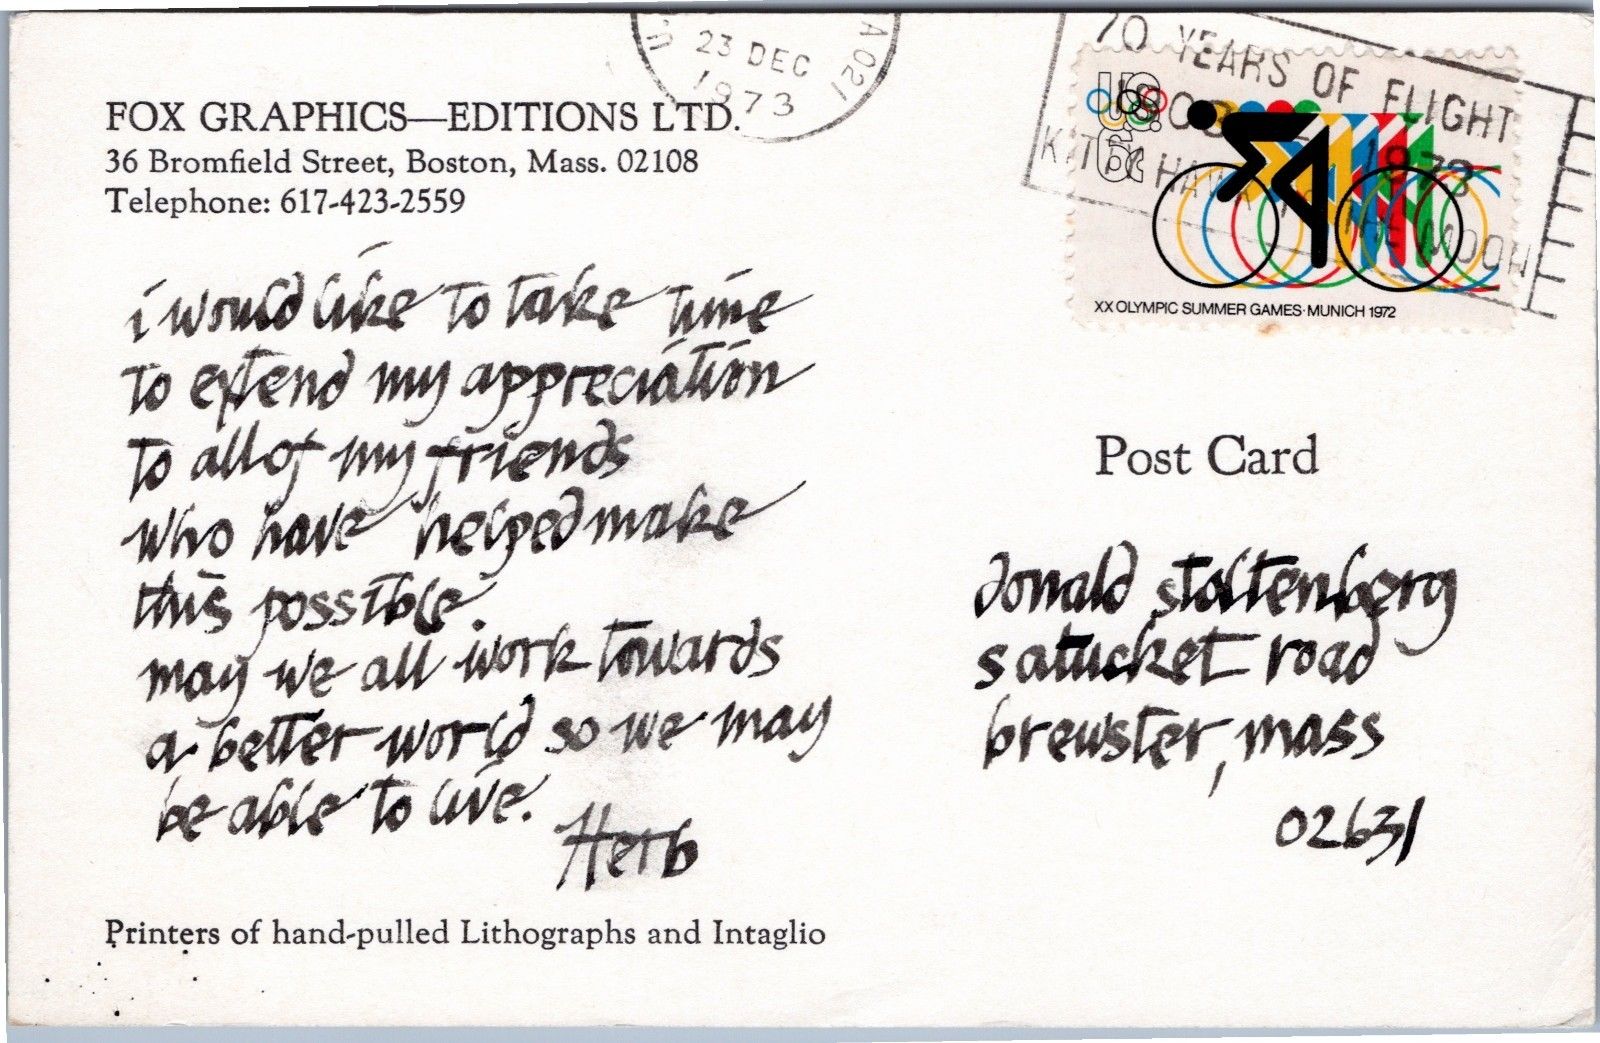 23 DEC
1973
A 021
70 YEARS OF FLIGHT
1903 1973
KITTY HAWK TO THE MOON
US
6c
XX OLYMPIC SUMMER GAMES·MUNICH 1972
FOX GRAPHICS—EDITIONS LTD.
36 Bromfield Street, Boston, Mass. 02108
Telephone: 617-423-2559
i would like to take time
to extend my appreciation
to all of my friends
who have helped make
this possible.
may we all work towards
a better world so we may
be able to live.
Herb
Printers of hand-pulled Lithographs and Intaglio
Post Card
donald stoltenberg
satucket road
brewster, mass
02631